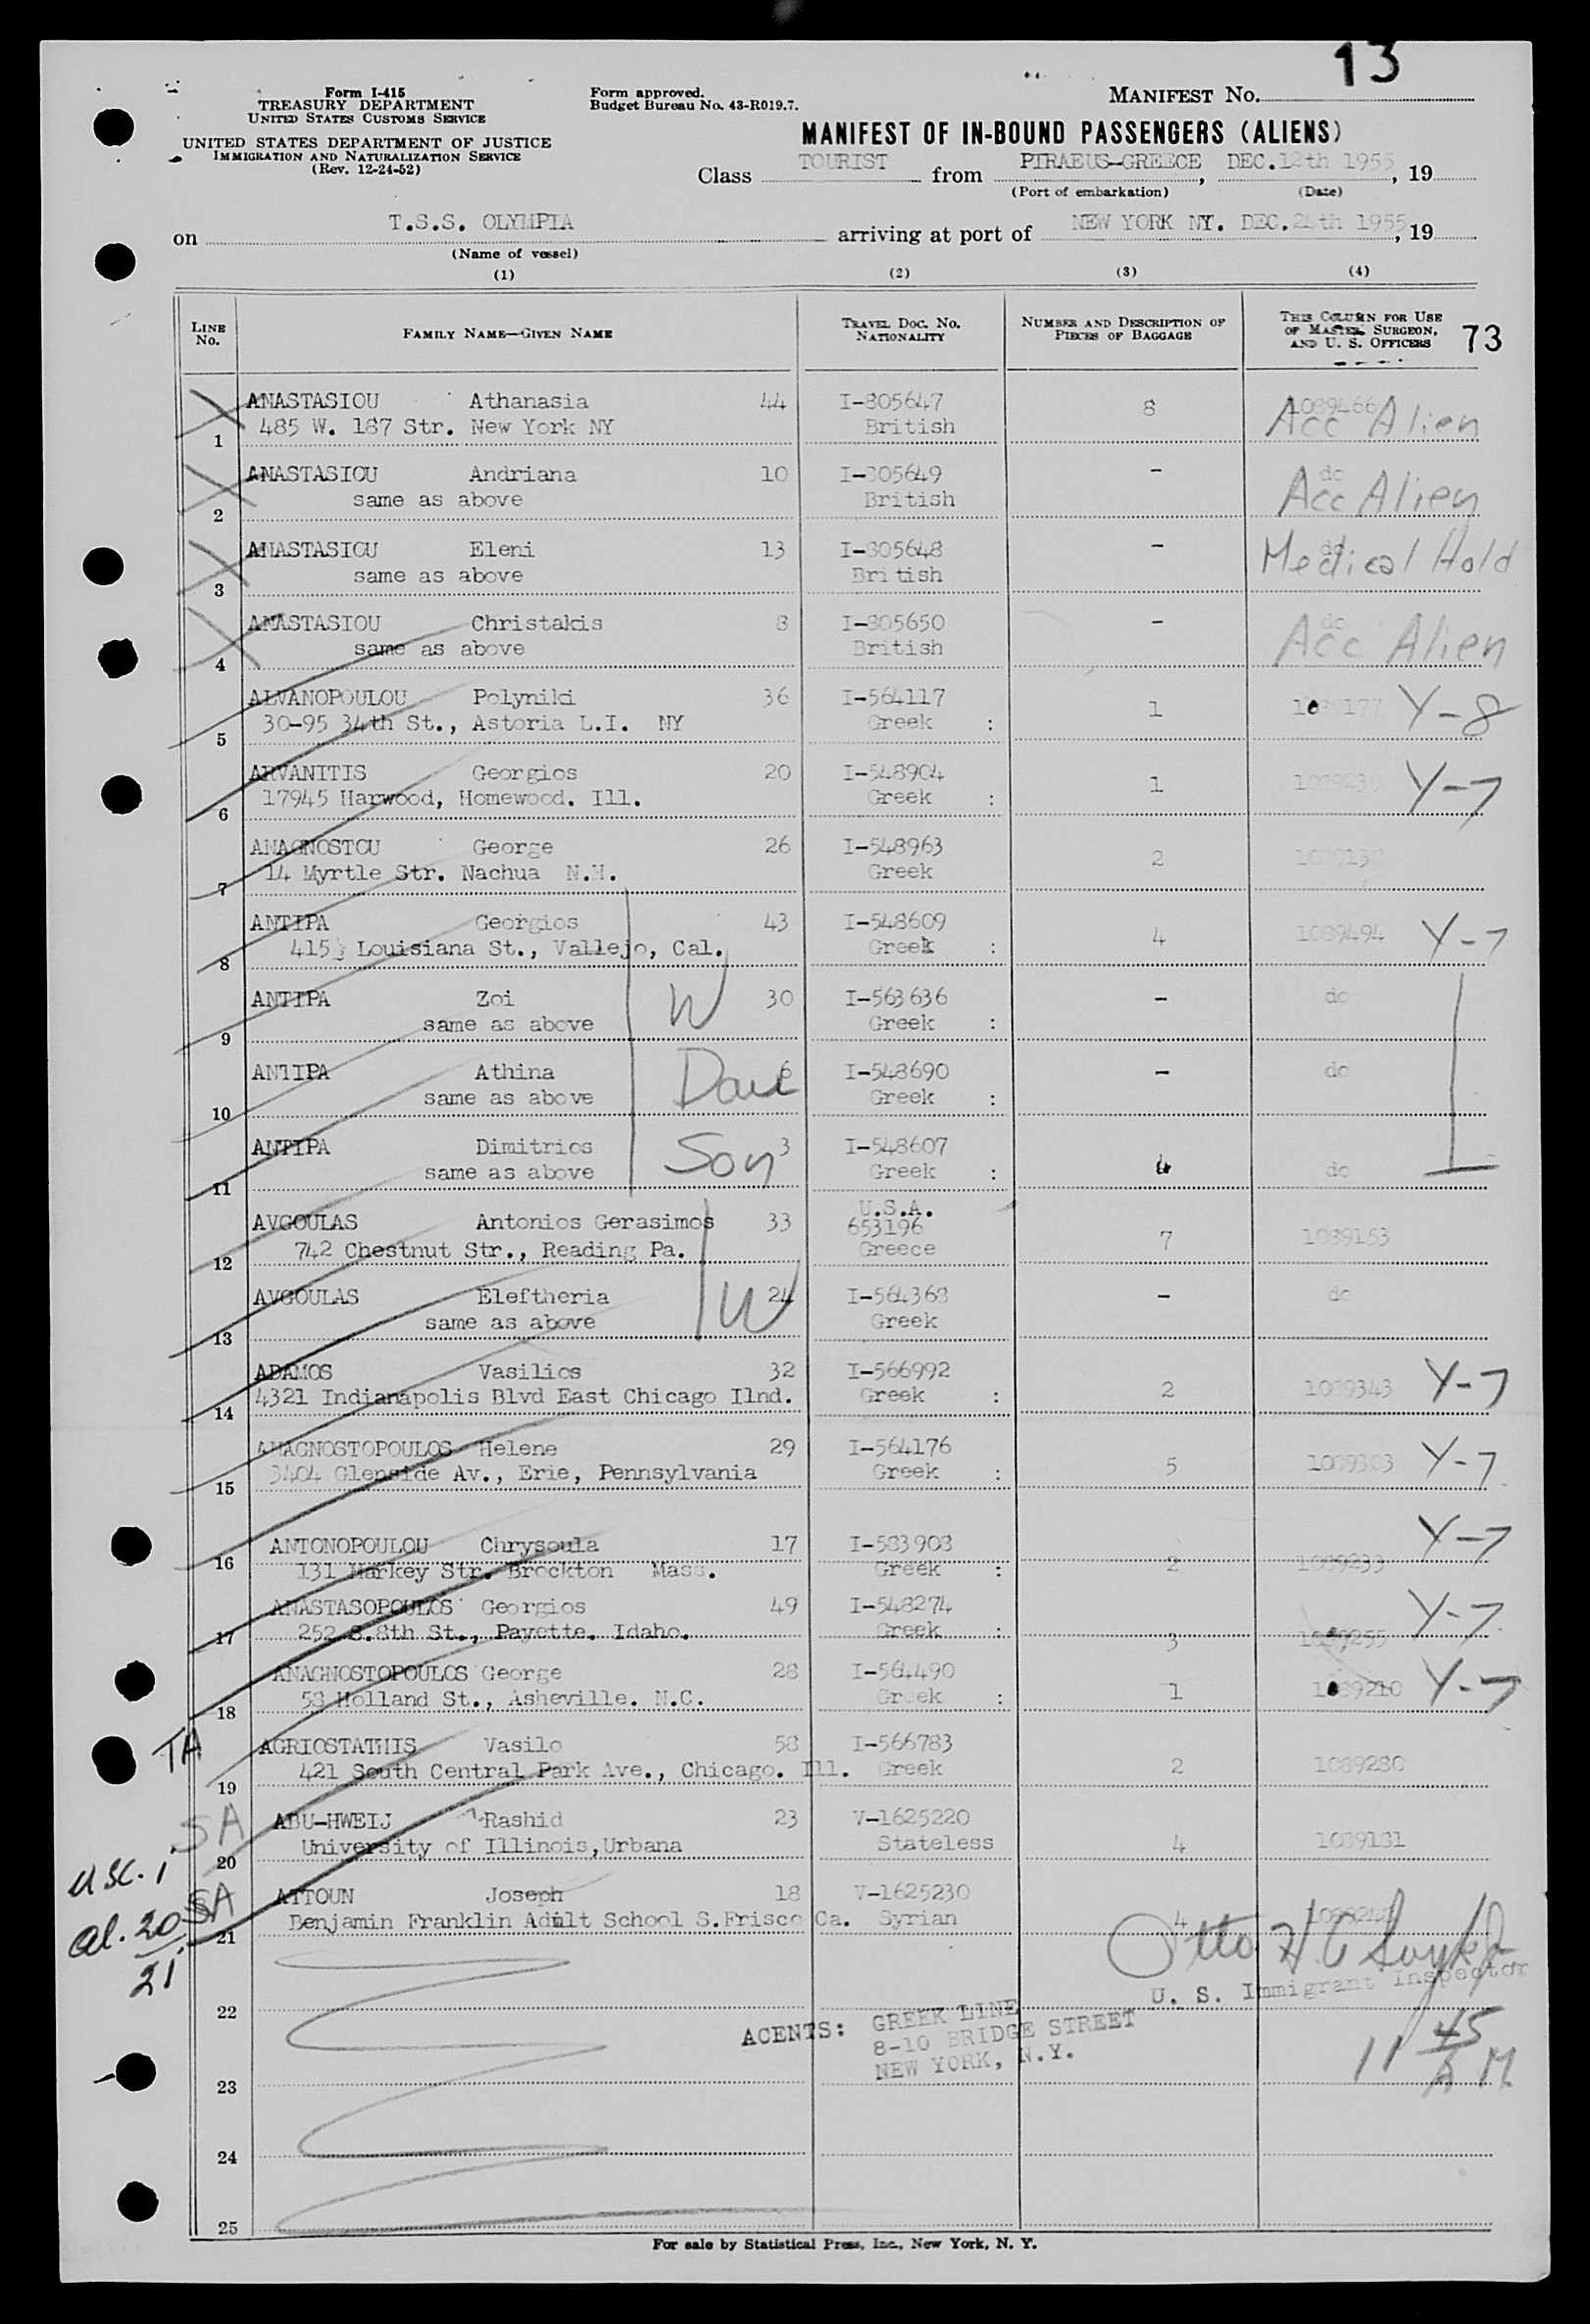 13
Form I-415
TREASURY DEPARTMENT
UNITED STATES CUSTOMS SERVICE
UNITED STATES DEPARTMENT OF JUSTICE
IMMIGRATION AND NATURALIZATION SERVICE
(Rev. 12-24-52)
Form approved.
Budget Bureau No. 43-R019.7.
MANIFEST No.
MANIFEST OF IN-BOUND PASSENGERS (ALIENS)
Class TOURIST from PIRAEUS-GREECE, DEC.12th 1955, 19
(Port of embarkation) (Date)
on T.S.S. OLYMPIA arriving at port of NEW YORK NY. DEC.24th 1955, 19
(Name of vessel)
(1) (2) (3) (4)
LINE No. FAMILY NAME—GIVEN NAME TRAVEL DOC. No. NATIONALITY NUMBER AND DESCRIPTION OF PIECES OF BAGGAGE THIS COLUMN FOR USE OF MASTER, SURGEON, AND U. S. OFFICERS 73
ANASTASIOU Athanasia 44 I-805647 8 1089466
1 485 W. 187 Str. New York NY British Acc Alien
ANASTASIOU Andriana 10 I-805649 - do
2 same as above British Acc Alien
ANASTASIOU Eleni 13 I-805648 - do
3 same as above British Medical Hold
ANASTASIOU Christakis 8 I-805650 - do
4 same as above British Acc Alien
ALVANOPOULOU Polyniki 36 I-564117 1 Y-8
5 30-95 34th St., Astoria L.I. NY Greek :
ARVANITIS Georgios 20 I-548904 1 Y-7
6 17945 Harwood, Homewood. Ill. Greek :
ANAGNOSTOU George 26 I-548963 2
7 14 Myrtle Str. Nachua N.H. Greek
ANTIPA Georgios 43 I-548609 4 1089494 Y-7
8 415½ Louisiana St., Vallejo, Cal. Greek :
ANTIPA Zoi W 30 I-563636 - do
9 same as above Greek :
ANTIPA Athina 6 I-548690 - do
10 same as above Greek :
ANTIPA Dimitrios Son 3 I-548607
11 same as above Greek : do
U.S.A.
AVGOULAS Antonios Gerasimos 33 653196 7 1089153
12 742 Chestnut Str., Reading Pa. Greece
AVGOULAS Eleftheria W 24 I-564368 - do
13 same as above Greek
ADAMOS Vasilios 32 I-566992 2 1089343 Y-7
14 4321 Indianapolis Blvd East Chicago Ilnd. Greek :
ANAGNOSTOPOULOS Helene 29 I-564176 5 Y-7
15 3404 Glenside Av., Erie, Pennsylvania Greek :
ANTONOPOULOU Chrysoula 17 I-583908 Y-7
16 131 Markey Str. Brockton Mass. Greek : 2 1089233
ANASTASOPOULOS Georgios 49 I-548274 Y-7
17 252 S.8th St., Payette. Idaho. Greek : 3 1089255
ANAGNOSTOPOULOS George 28 I-564490 1 1089210 Y-7
18 58 Holland St., Asheville. N.C. Greek :
TA AGRIOSTATHIS Vasilo 58 I-566783 2 1089280
19 421 South Central Park Ave., Chicago. Ill. Greek
SA ABU-HWEIJ Rashid 23 V-1625220 4 1089181
20 University of Illinois,Urbana Stateless
SA ATTOUN Joseph 18 V-1625230 4
21 Benjamin Franklin Adult School S.Frisco Ca. Syrian
usc. 1
al. 20
21
U. S. Immigrant Inspector
22
AGENTS: GREEK LINE
8-10 BRIDGE STREET
NEW YORK, N.Y.
11 45 A M
23
24
25
For sale by Statistical Press, Inc., New York, N. Y.